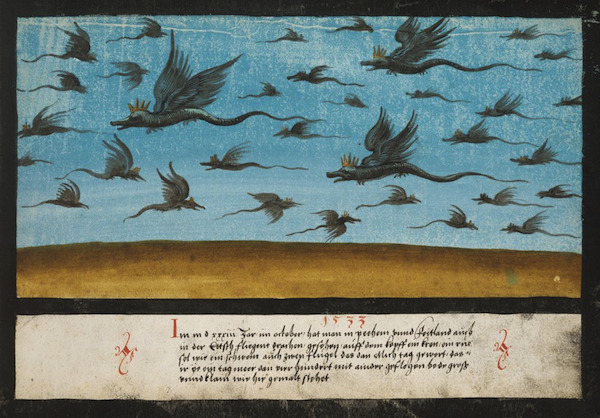 1533
Im m d xxxiii Jar im october, hat man in pechem vnnd Foitland auch
in der fliegent drachen gesehen auff dem kopff ein kron, ein rue
sel wie ein schwein auch zwen fligel das dan etlich tag gewert, das
ir ein tag meer dan vier hundert mit ainder geflogen bede groß
vnnd klain wie hie gemalt stehet